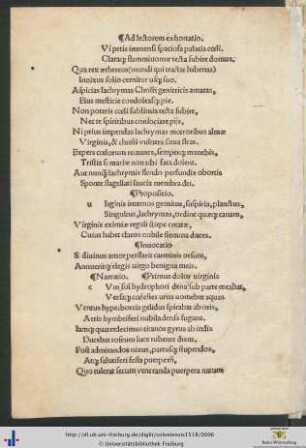 ¶Ad lectorem exhortatio.
Vt petis immensi spaciosa palatia cœli.
Claraq; flammiuomæ tecta subire domus.
Qua rex æthereus (mundi qui tractat habenas)
Innixus solio cernitur usq; suo.
Aspicias lachrymas Christi genitricis amaras,
Eius mesticiæ condoleasq; pie.
Non poteris cœli sublimia tecta subire,
Nec te spiritibus consociare piis,
Ni prius impendas lachrymas mœroribus almæ
Virginis, & christi vulnera sæua fleas.
Expers cælorum remanes, semperq; manebis,
Tristia si matris non tibi fata dolent.
Aut nunq; lachrymis flendo perfundis obortis
Sponte flagellati saucia membra dei.
¶Propositio.
u Irginis intemos gemitus, suspiria, planctus,
Singultus, lachrymas, ordine quæq; canam,
Virginis eximiæ regali stirpe creatæ,
Cuius habet claros nobile stemma duces.
¶Inuocatio
S diuinus amor perstauit carminis orsum,
Annueritq; elegis uirgo benigna meis.
¶Narratio. ¶Primus dolor virginis
c Vm sol hydrophori dena sub parte meabat,
Versaq; cælestes urna uomebat aquas
Ventus hyperboreis gelidus spirabat ab oris,
Aeris hymbriferi nubila densa fugans.
Iamq; quaterdecimus titanos gyrus ab india
Ducebat roseum luce rubente diem.
Post admirandos niueas, partusq; stupendos,
Atq; salutiferi festa puerperii,
Quo tulerat secum veneranda puerpera natum
http://dl.ub.uni-freiburg.de/diglit/coloniensis1518/0006
© Universitätsbibliothek Freiburg
Baden-Württemberg